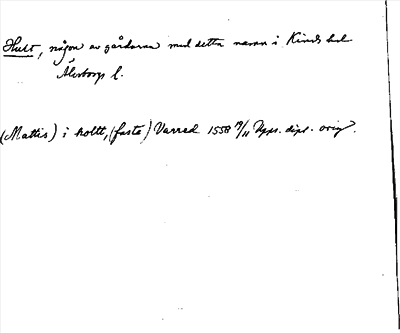 Hult, någon av gårdarna med detta namn i Kinds hd
Älvsborgs l.
(Mattis) i holtt, (fasta) Varred 1558 19/11 Upps. dipl. orig.